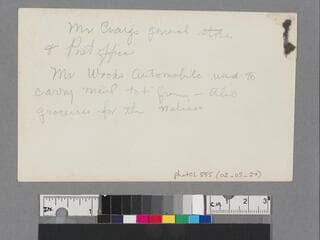 Mr Craigs general store
& Post office
Mr Woods Automobile used to
carry mail to & from - Also
groceries for the Natives
photCL 555 (02_03_27)
IN. 1
CM 1 2 3